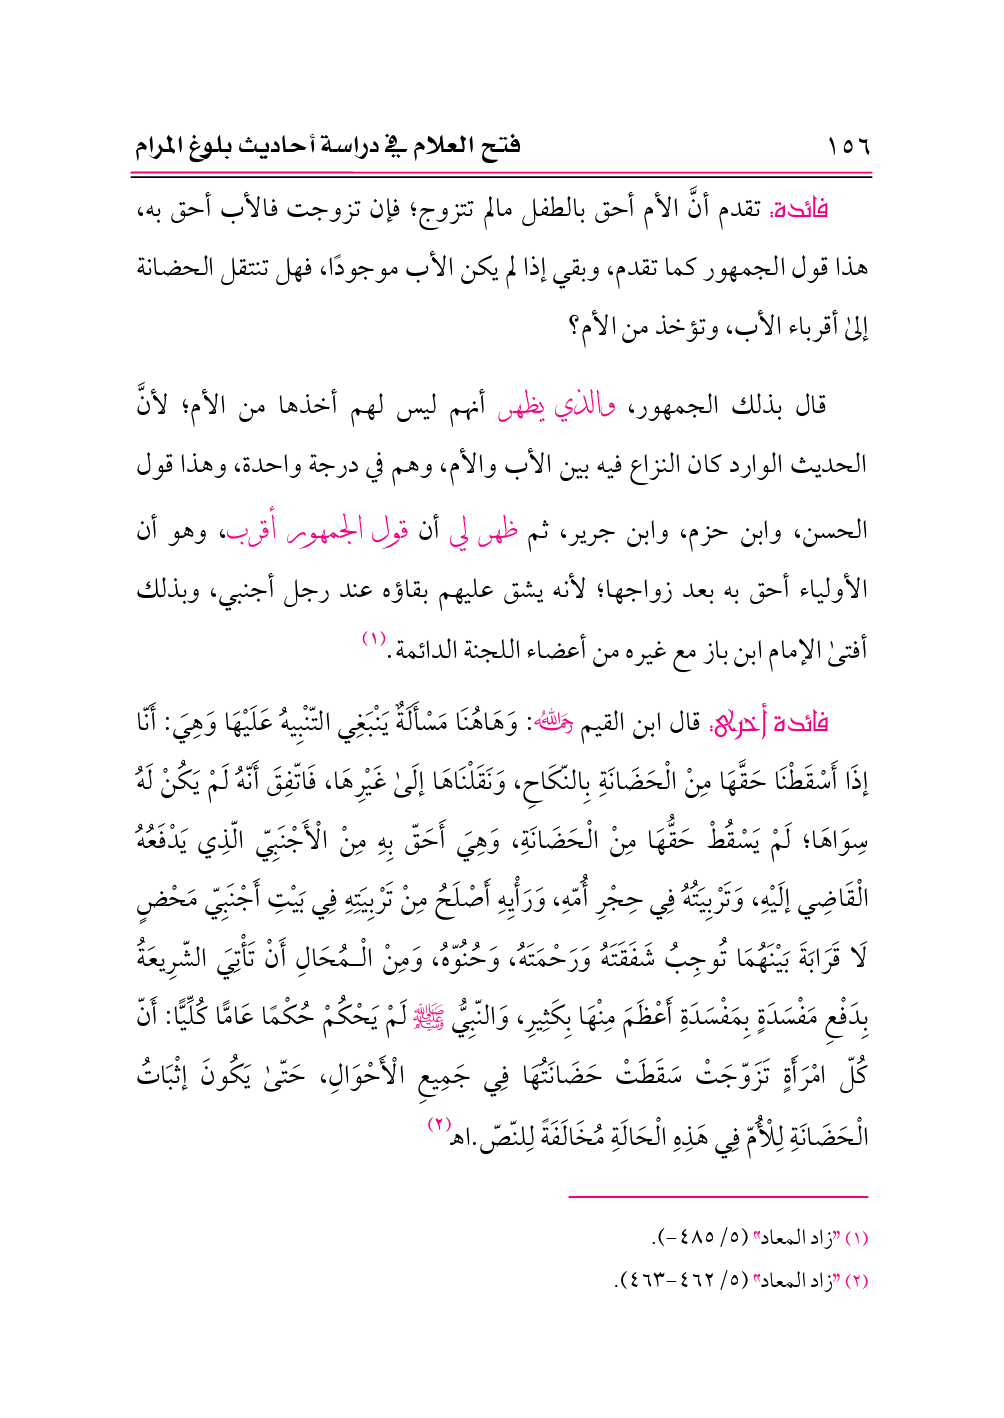 ١٥٦ فتح العلام في دراسة أحاديث بلوغ المرام
فائدة: تقدم أنَّ الأم أحق بالطفل مالم تتزوج؛ فإن تزوجت فالأب أحق به،
هذا قول الجمهور كما تقدم، وبقي إذا لم يكن الأب موجودًا، فهل تنتقل الحضانة
إلىٰ أقرباء الأب، وتؤخذ من الأم؟
قال بذلك الجمهور، والذي يظهر أنهم ليس لهم أخذها من الأم؛ لأنَّ
الحديث الوارد كان النزاع فيه بين الأب والأم، وهم في درجة واحدة، وهذا قول
الحسن، وابن حزم، وابن جرير، ثم ظهر لي أن قول الجمهور أقرب، وهو أن
الأولياء أحق به بعد زواجها؛ لأنه يشق عليهم بقاؤه عند رجل أجنبي، وبذلك
أفتىٰ الإمام ابن باز مع غيره من أعضاء اللجنة الدائمة.(١)
فائدة أخرى: قال ابن القيم رحمه الله: وَهَاهُنَا مَسْأَلَةٌ يَنْبَغِي التّنْبِيهُ عَلَيْهَا وَهِيَ: أَنّا
إذَا أَسْقَطْنَا حَقَّهَا مِنْ الْحَضَانَةِ بِالنّكَاحِ، وَنَقَلْنَاهَا إلَىٰ غَيْرِهَا، فَاتّفِقَ أَنّهُ لَمْ يَكُنْ لَهُ
سِوَاهَا؛ لَمْ يَسْقُطْ حَقُّهَا مِنْ الْحَضَانَةِ، وَهِيَ أَحَقّ بِهِ مِنْ الْأَجْنَبِيّ الّذِي يَدْفَعُهُ
الْقَاضِي إلَيْهِ، وَتَرْبِيَتُهُ فِي حِجْرِ أُمّهِ، وَرَأْيِهِ أَصْلَحُ مِنْ تَرْبِيَتِهِ فِي بَيْتِ أَجْنَبِيّ مَحْضٍ
لَا قَرَابَةَ بَيْنَهُمَا تُوجِبُ شَفَقَتَهُ وَرَحْمَتَهُ، وَحُنُوّهُ، وَمِنْ الْـمُحَالِ أَنْ تَأْتِيَ الشّرِيعَةُ
بِدَفْعِ مَفْسَدَةٍ بِمَفْسَدَةِ أَعْظَمَ مِنْهَا بِكَثِيرِ، وَالنّبِيُّ ﷺ لَمْ يَحْكُمْ حُكْمًا عَامًّا كُلِّيًّا: أَنّ
كُلّ امْرَأَةٍ تَزَوّجَتْ سَقَطَتْ حَضَانَتُهَا فِي جَمِيعِ الْأَحْوَالِ، حَتّىٰ يَكُونَ إثْبَاتُ
الْحَضَانَةِ لِلْأُمّ فِي هَذِهِ الْحَالَةِ مُخَالَفَةً لِلنّصّ.اهـ(٢)
(١) "زاد المعاد" (٥/ ٤٨٥-).
(٢) "زاد المعاد" (٥/ ٤٦٢-٤٦٣).